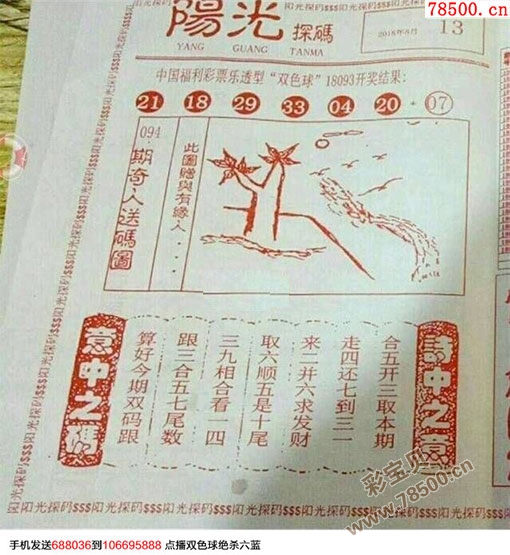 78500.cn
阳光探码SSS阳光探码SSS阳光探码SSS
陽光 探碼
YANG GUANG TANMA
2018年8月 13
中国福利彩票乐透型“双色球”18093开奖结果:
21 18 29 33 04 20 + 07
094
期奇人送碼圖
此圖贈與有緣人....
詩中之意
合五开三取本期
走四还七到三一
来二并六求发财
取六顺五是十尾
三九相合看一四
跟三合五七尾数
算好今期双码跟
意中之碼
彩宝贝
www.78500.cn
阳光探码SSS阳光探码SSS阳光探码SSS阳光探码SSS阳光探码
手机发送688036到106695888 点播双色球绝杀六蓝